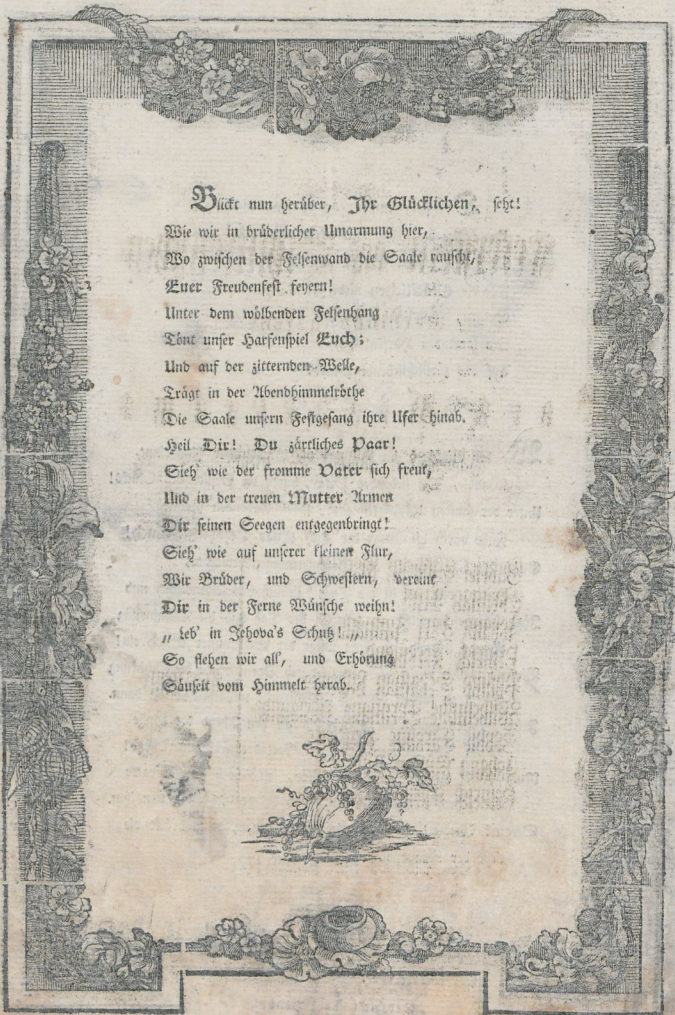 Blickt nun herüber, Ihr Glücklichen, seht!
Wie wir in brüderlicher Umarmung hier,
Wo zwischen der Felsenwand die Saale rauscht,
Euer Freudenfest feyern!
Unter dem wölbenden Felsenhang
Tönt unser Harfenspiel Euch;
Und auf der zitternden Welle,
Trägt in der Abendhimmelröthe
Die Saale unsern Festgesang ihre Ufer hinab.
Heil Dir! Du zärtliches Paar!
Sieh' wie der fromme Vater sich freut,
Und in der treuen Mutter Armen
Dir seinen Seegen entgegenbringt!
Sieh' wie auf unserer kleinen Flur,
Wir Brüder, und Schwestern, vereint
Dir in der Ferne Wünsche weihn!
„ Leb' in Jehova's Schutz! „
So flehen wir all', und Erhörung
Säuselt vom Himmelt herab.